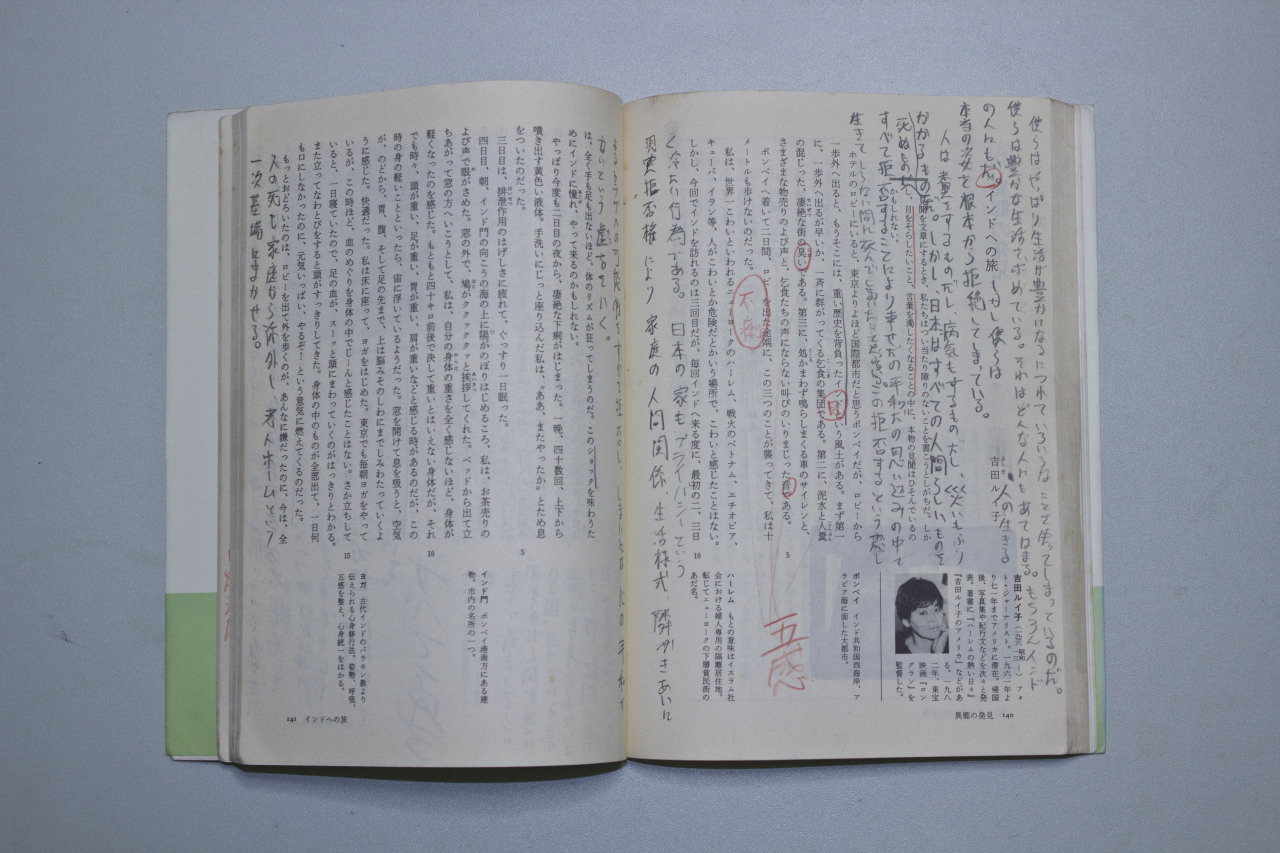 僕らはやっぱり生活が豊かになるにつれていろいろなことを失ってしまっているのだ。
僕らは豊かな生活を求めている。それはどんな人にもあてはまる。もちろんインド
の人にもだ。しかし僕らは人の生きる
本当の姿を根本から拒絶してしまっている。
人は糞をするものだし、病気もするものだし、災いもふり
かかるものだ。しかし日本はすべての人間らしいものを
すべて拒否することにより幸せだの平和だの思い込みの中で
インドへの旅
吉田ルイ子
見聞を文章にするとき、私たちはつい当たり障りのないことを書こうとしがちだ。しか
し、目をそらしたいこと、言葉を濁したくなることの中に、本物の見聞はひそんでいるの
かもしれない。
ホテルのロビーにいると、東京よりよほど国際都市だと思うボンベイだが、ロビーから
一歩外へ出ると、もうそこには、重い歴史を背負ったインドという風土がある。まず第一
に、一歩外へ出るが早いか、一斉に群がってくる乞食の集団である。第二に、泥水と人糞
の混じった、凄絶な街の臭いである。第三に、処かまわず鳴らしまくる車のサイレンと、
さまざまな物売りのよび声と、乞食たちの声にならない叫びのいりまじった音である。
ボンベイへ着いて二日間、ロビーを出た途端に、この三つのことが襲ってきて、私は十
メートルも歩けないのだった。
私は、世界一こわいといわれるニューヨークのハーレム、戦火のベトナム、エチオピア、
キューバ、イラン等、人がこわいとか危険だとかいう場所で、こわいと感じたことはない。
しかし、今回でインドを訪れるのは三回目だが、毎回インドへ来る度に、最初の二、三日
目
五感
く冷たい行為である。日本の家もプライバシーという
現実拒否権により家庭の人間関係、生活様式、隣近きあいに
5
10
吉田ルイ子
フォト・ジャーナリスト。一九六一年よ
り七一年までアメリカに滞在。帰国
後、写真集や紀行文などを次々と発
表。著書に『ハーレムの熱い日々』
『吉田ルイ子のアメリカ』などがあ
る。一九八
二年、東宝
映画『ロン
グラン』を
監督した。
ボンベイ インド共和国西海岸、ア
ラビア海に面した大都市。
ハーレム もとの意味はイスラム社
会における婦人専用の隔離居住地。
転じてニューヨークの下層貧民街の
あだ名。
異郷の発見 140
は、全く手も足も出ないほど、体のリズムが狂ってしまうのだ。このショックを味わうた
めにインドに憧れ、やって来るのかもしれない。
やっぱり今度も二日目の夜から、凄絶な下痢がはじまった。一晩、四十数回、上下から
噴き出す黄色い液体。手洗いにじっと座り込んだ私は、〝ああ、またやったか〟とため息
をついたのだった。
三日目は、排泄作用のはげしさに疲れて、ぐっすり一日眠った。
四日目、朝、インド門の向こうの海の上に陽がのぼりはじめるころ、私は、お茶売りの
よび声で眼がさめた。窓の外で、鳩がククックックッと挨拶してくれた。ベッドから出て立
ちあがって窓の方へいこうとして、私は、自分の身体の重さを全く感じないほど、身体が
軽くなったのを感じた。もともと四十キロ前後で決して重いとはいえない身体だが、それ
でも時々、頭が重い、足が重い、胃が重い、肩が重いなどと感じる時があるのだが、この
時の身の軽いことといったら、宙に浮いているようだった。窓を開けて息を吸うと、空気
が、のどから、胃、腹、そして足の先まで、上は脳みそのしわにまでしみわたっていくよ
うに感じた。快適だった。私は床に座って、ヨガをはじめた。東京でも毎朝ヨガをやって
いるが、この時ほど、血のめぐりを身体の中でじーんと感じたことはない。さか立ちして
いると、一日寝ていたので、足の血が、スーッと頭にまわっていくのがはっきりとわかる。
また立ってなわとびをすると頭がすっきりしてきた。身体の中のものが全部出て、一日何
も口にしなかったのに、元気いっぱい、やるぞ！という意気に燃えてくるのだった。
もっとおどろいたのは、ロビーを出て外を歩くのが、あんなに嫌だったのに、今は、全
人の死も家庭から除外し、老人ホームという
一次墓場にまかせる。
5
10
15
インド門 ボンベイ港南方にある建
物。市内の名所の一つ。
ヨガ 古代インドのバラモン教より
伝えられる心身修行法。姿勢、呼吸、
五感を整え、心身統一をはかる。
141 インドへの旅